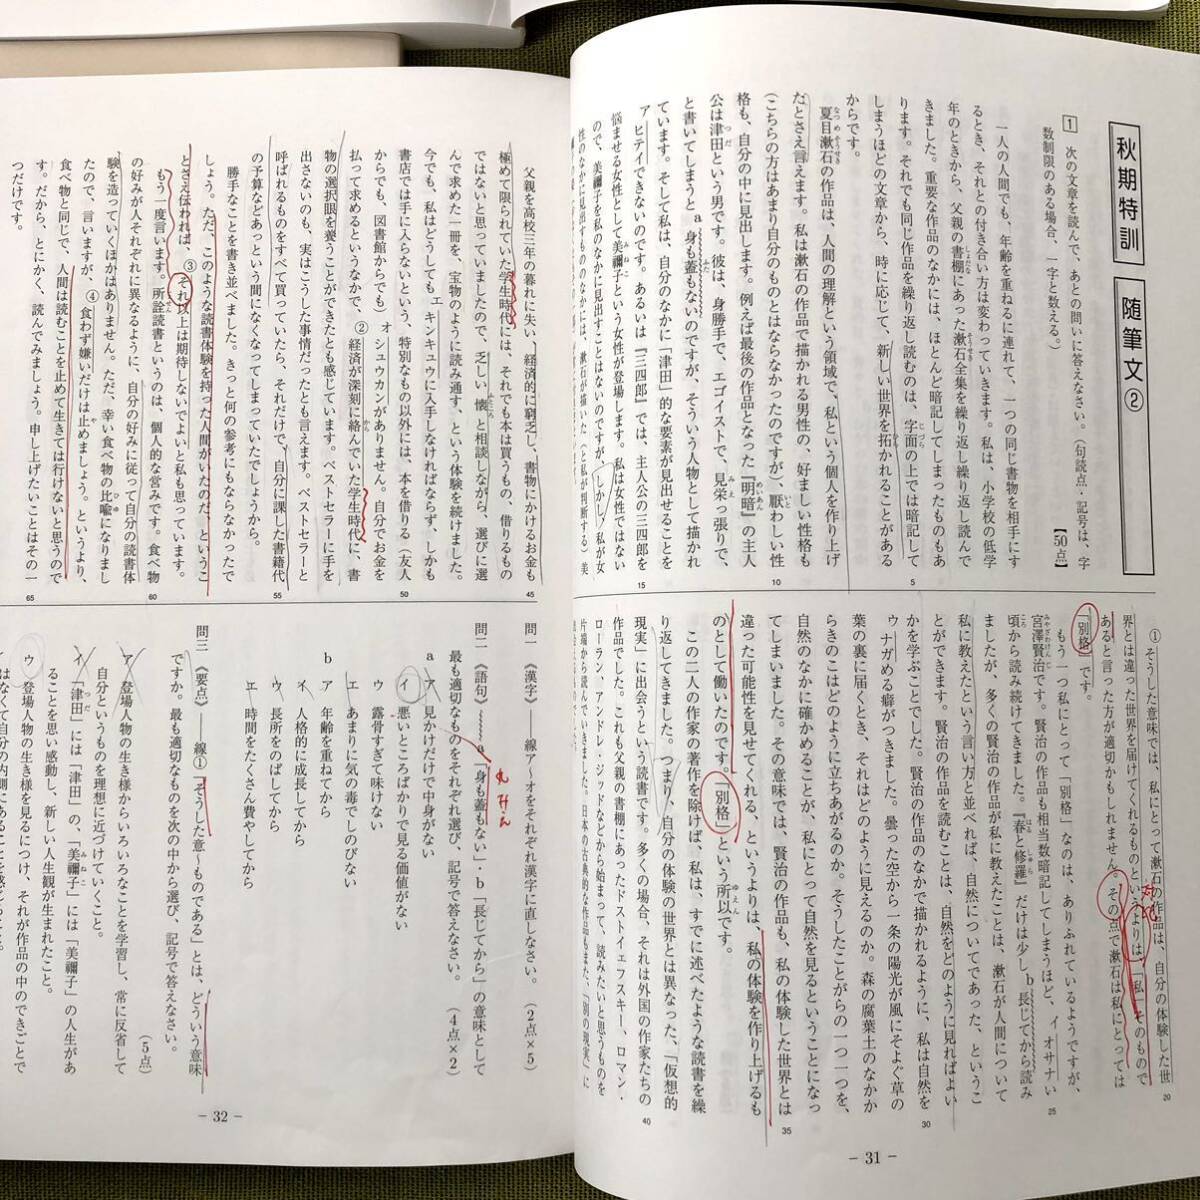 秋期特訓
随筆文②
1 次の文章を読んで、あとの問いに答えなさい。(句読点・記号は、字
数制限のある場合、一字と数える。)
【50点】
一人の人間でも、年齢を重ねるに連れて、一つの同じ書物を相手にす
るとき、それとの付き合い方は変わっていきます。私は、小学校の低学
年のときから、父親の書棚にあった漱石全集を繰り返し繰り返し読んで
きました。重要な作品のなかには、ほとんど暗記してしまったものもあ
ります。それでも同じ作品を繰り返し読むのは、字面の上では暗記して
しまうほどの文章から、時に応じて、新しい世界を拓かれることがある
からです。
夏目漱石の作品は、人間の理解という領域で、私という個人を作り上げ
たとさえ言えます。私は漱石の作品で描かれる男性の、好ましい性格も
(こちらの方はあまり自分のものとはならなかったのですが)、厭わしい性
格も、自分の中に見出します。例えば最後の作品となった『明暗』の主人
公は津田という男です。彼は、身勝手で、エゴイストで、見栄っ張りで、
と書いてしまうとa身も蓋もないのですが、そういう人物として描かれ
ています。そして私は、自分のなかに「津田」的な要素が見出せることを
アヒテイできないのです。あるいは『三四郎』では、主人公の三四郎を
悩ませる女性として美禰子という女性が登場します。私は女性ではない
ので、美禰子を私のなかに見出すことはないのですが、しかし、私が女
性のなかに見出すもののなかには、漱石が描いた(と私が判断する)美
①そうした意味では、私にとって漱石の作品は、自分の体験した世
界とは違った世界を届けてくれるものというよりは、「私」そのもので
あると言った方が適切かもしれません。その点で漱石は私にとっては
「別格」です。
もう一つ私にとって「別格」なのは、ありふれているようですが、
宮澤賢治です。賢治の作品も相当数暗記してしまうほど、イオサナい
頃から読み続けてきました。『春と修羅』だけは少しb長じてから読み
ましたが、多くの賢治の作品が私に教えたことは、漱石が人間について
私に教えたという言い方と並べれば、自然についてであった、というこ
とができます。賢治の作品を読むことは、自然をどのように見ればよい
かを学ぶことでした。賢治の作品のなかで描かれるように、私は自然を
ウナガめる癖がつきました。曇った空から一条の陽光が風にそよぐ草の
葉の裏に届くとき、それはどのように見えるのか。森の腐葉土のなかか
らきのこはどのように立ちあがるのか。そうしたことがらの一つ一つを、
自然のなかに確かめることが、私にとって自然を見るということになっ
てしまいました。その意味では、賢治の作品も、私の体験した世界とは
違った可能性を見せてくれる、というよりは、私の体験を作り上げるも
のとして働いたのです。「別格」という所以です。
この二人の作家の著作を除けば、私は、すでに述べたような読書を繰
り返してきました。つまり、自分の体験の世界とは異なった、「仮想的
現実」に出会うという読書です。多くの場合、それは外国の作家たちの
作品でした。これも父親の書棚にあったドストイェフスキー、ロマン・
ローラン、アンドレ・ジッドなどから始まって、読みたいと思うものを
片端から読んでいきました。日本の古典的な作品もまた、「別の現実」に
− 31 −
父親を高校三年の暮れに失い、経済的に窮乏し、書物にかけるお金も
極めて限られていた学生時代には、それでも本は買うもの、借りるもの
ではないと思っていましたので、乏しい懐と相談しながら、選びに選
んで求めた一冊を、宝物のように読み通す、という体験を続けました。
今でも、私はどうしても、エキンキュウに入手しなければならず、しかも
書店では手に入らないという、特別なもの以外には、本を借りる(友人
からでも、図書館からでも)オシュウカンがありません。自分でお金を
払って求めるというなかで、②経済が深刻に絡んでいた学生時代に、書
物の選択眼を養うことができたとも感じています。ベストセラーに手を
出さないのも、実はこうした事情だったとも言えます。ベストセラーと
呼ばれるものをすべて買っていたら、それだけで、自分に課した書籍代
の予算などあっという間になくなってしまっていたでしょうから。
勝手なことを書き並べました。きっと何の参考にもならなかったで
しょう。ただ、このような読書体験を持った人間がいたのだ、というこ
とさえ伝われば、③それ以上は期待しないでよいと私も思っています。
もう一度言います。所詮読書というのは、個人的な営みです。食べ物
の好みが人それぞれに異なるように、自分の好みに従って自分の読書体
験を造っていくほかはありません。ただ、幸い食べ物の比喩になりまし
たので、言いますが、④食わず嫌いだけは止めましょう。というより、
食べ物と同じで、人間は読むことを止めて生きては行けないと思うので
す。だから、とにかく、読んでみましょう。申し上げたいことはその一
つだけです。
問一 《漢字》――線ア〜オをそれぞれ漢字に直しなさい。(2点×5)
問二 《語句》〜〜〜a「身も蓋もない」・b「長じてから」の意味として
最も適切なものをそれぞれ選び、記号で答えなさい。(4点×2)
a ア 見かけだけで中身がない
イ 悪いところばかりで見る価値がない
ウ 露骨すぎて味けない
エ あまりに気の毒でしのびない
b ア 年齢を重ねてから
イ 人格的に成長してから
ウ 長所をのばしてから
エ 時間をたくさん費やしてから
問三 《要点》――線①「そうした意〜ものである」とは、どういう意味
ですか。最も適切なものを次の中から選び、記号で答えなさい。
(5点)
ア 登場人物の生き様からいろいろなことを学習し、常に反省して
自分というものを理想に近づけていくこと。
イ 「津田」には「津田」の、「美禰子」には「美禰子」の人生があ
ることを思い感動し、新しい人生観が生まれたこと。
ウ 登場人物の生き様を見るにつけ、それが作品の中のできごとで
はなくて自分の内側にあることを感じること。
− 32 −